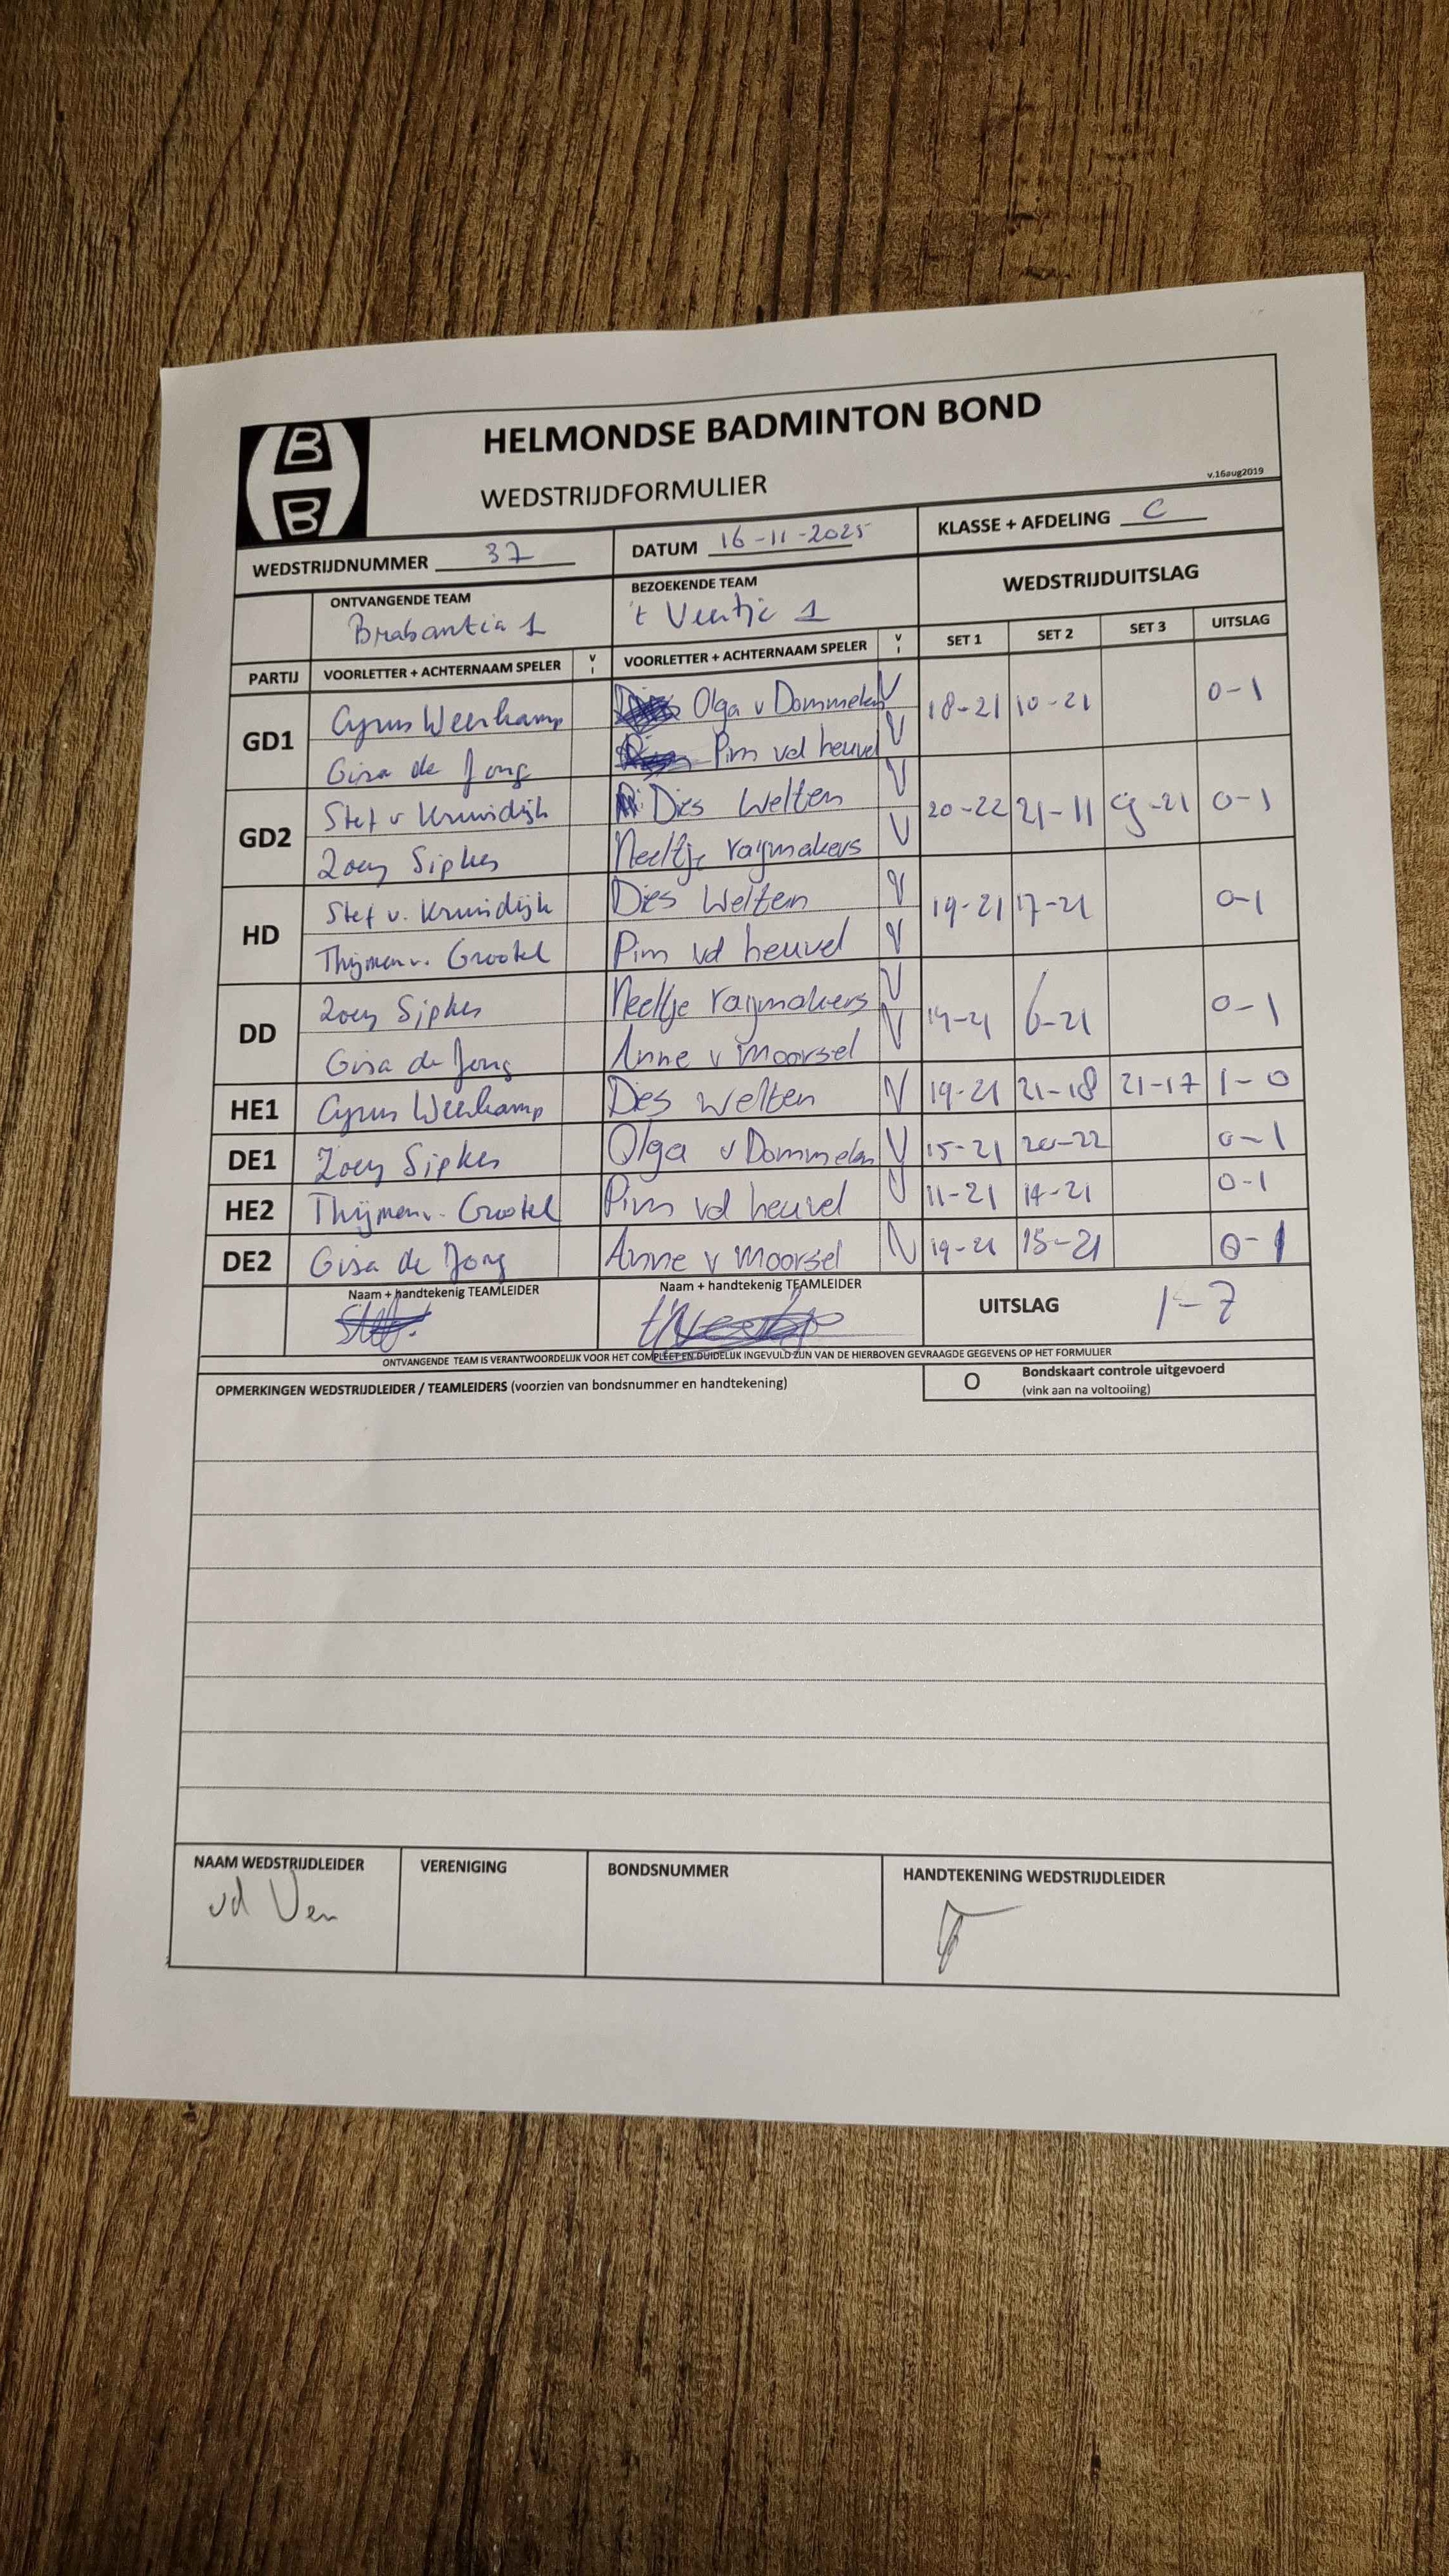 B
B
HELMONDSE BADMINTON BOND
WEDSTRIJDFORMULIER
v.16aug2019
WEDSTRIJDNUMMER 37 DATUM 16-11-2025 KLASSE + AFDELING C
ONTVANGENDE TEAM BEZOEKENDE TEAM WEDSTRIJDUITSLAG
Brabantia 1 't Veertje 1
PARTIJ VOORLETTER + ACHTERNAAM SPELER V I VOORLETTER + ACHTERNAAM SPELER V I SET 1 SET 2 SET 3 UITSLAG
GD1 Cyrus Weerkamp Olga v Dommelen V 18-21 10-21 0-1
Gisa de Jong Pim vd heuvel V
GD2 Stef v Kruisdijk Dies Welten V 20-22 21-11 9-21 0-1
Zoey Sipkes Neeltje raymakers V
HD Stef v. Kruisdijk Dies Welten V 19-21 17-21 0-1
Thijmen v. Grootel Pim vd heuvel V
DD Zoey Sipkes Neeltje raymakers V 14-21 6-21 0-1
Gisa de Jong Anne v moorsel V
HE1 Cyrus Weerkamp Dies welten V 19-21 21-18 21-17 1-0
DE1 Zoey Sipkes Olga v Dommelen V 15-21 20-22 0-1
HE2 Thijmen v. Grootel Pim vd heuvel V 11-21 14-21 0-1
DE2 Gisa de Jong Anne v moorsel V 19-21 15-21 0-1
Naam + handtekenig TEAMLEIDER Naam + handtekenig TEAMLEIDER UITSLAG 1-7
Stef.
ONTVANGENDE TEAM IS VERANTWOORDELIJK VOOR HET COMPLEET EN DUIDELIJK INGEVULD ZIJN VAN DE HIERBOVEN GEVRAAGDE GEGEVENS OP HET FORMULIER
OPMERKINGEN WEDSTRIJDLEIDER / TEAMLEIDERS (voorzien van bondsnummer en handtekening) O Bondskaart controle uitgevoerd
(vink aan na voltooiing)
NAAM WEDSTRIJDLEIDER VERENIGING BONDSNUMMER HANDTEKENING WEDSTRIJDLEIDER
vd Ven